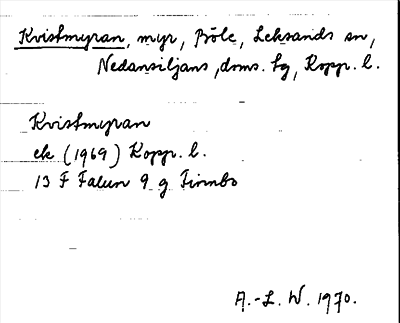 Kvistmyran, myr, Böle, Leksands sn,
Nedansiljans doms. tg, Kopp. l.
Kvistmyran
ek (1969) Kopp. l.
13 F Falun 9 g Finnbo
A.-L. W. 1970.